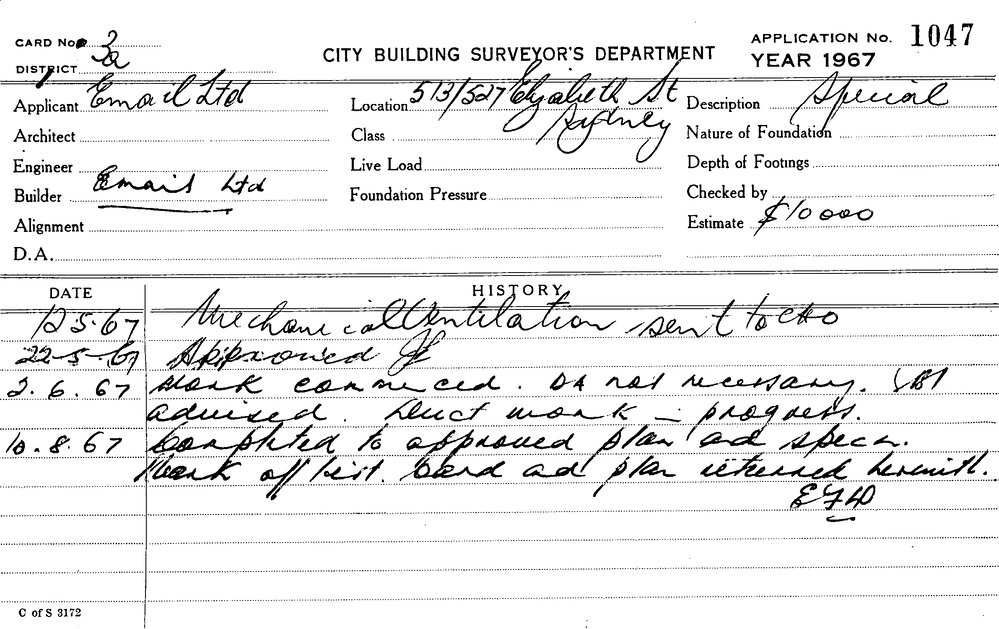 CARD No. 3a
CITY BUILDING SURVEYOR'S DEPARTMENT
APPLICATION No. 1047
YEAR 1967
DISTRICT
Applicant Email Ltd
Location 513/527 Elizabeth St
Sydney
Description Special
Architect
Class
Nature of Foundation
Engineer
Live Load
Depth of Footings
Builder Email Ltd
Foundation Pressure
Checked by
Estimate $10000
Alignment
D.A.
DATE HISTORY
12.5.67 Mechanical Ventilation sent to CHO
22-5-67 Approved
2.6.67 Work commenced. DA not necessary.
advised. Duct work in progress.
10.8.67 Completed to approved plan ad specn.
Mark off list. Card ad plan returned herewith.
EFD
C of S 3172